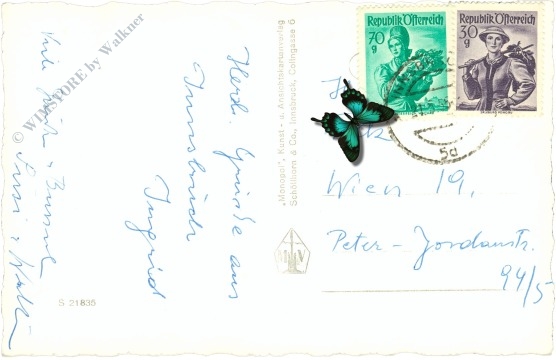 Herzl. Grüsse aus
Innsbruck
Ingrid
Viele &
Sussi &
"Monopol", Kunst- u. Ansichtskartenverlag
Schöllhorn & Co., Innsbruck, Colingasse 6
MV
S 21835
Republik Österreich
70
g
Republik Österreich
30
g
5d
Wien 19,
Peter-Jordanstr.
94/5
© WIMSTORE by Walkner